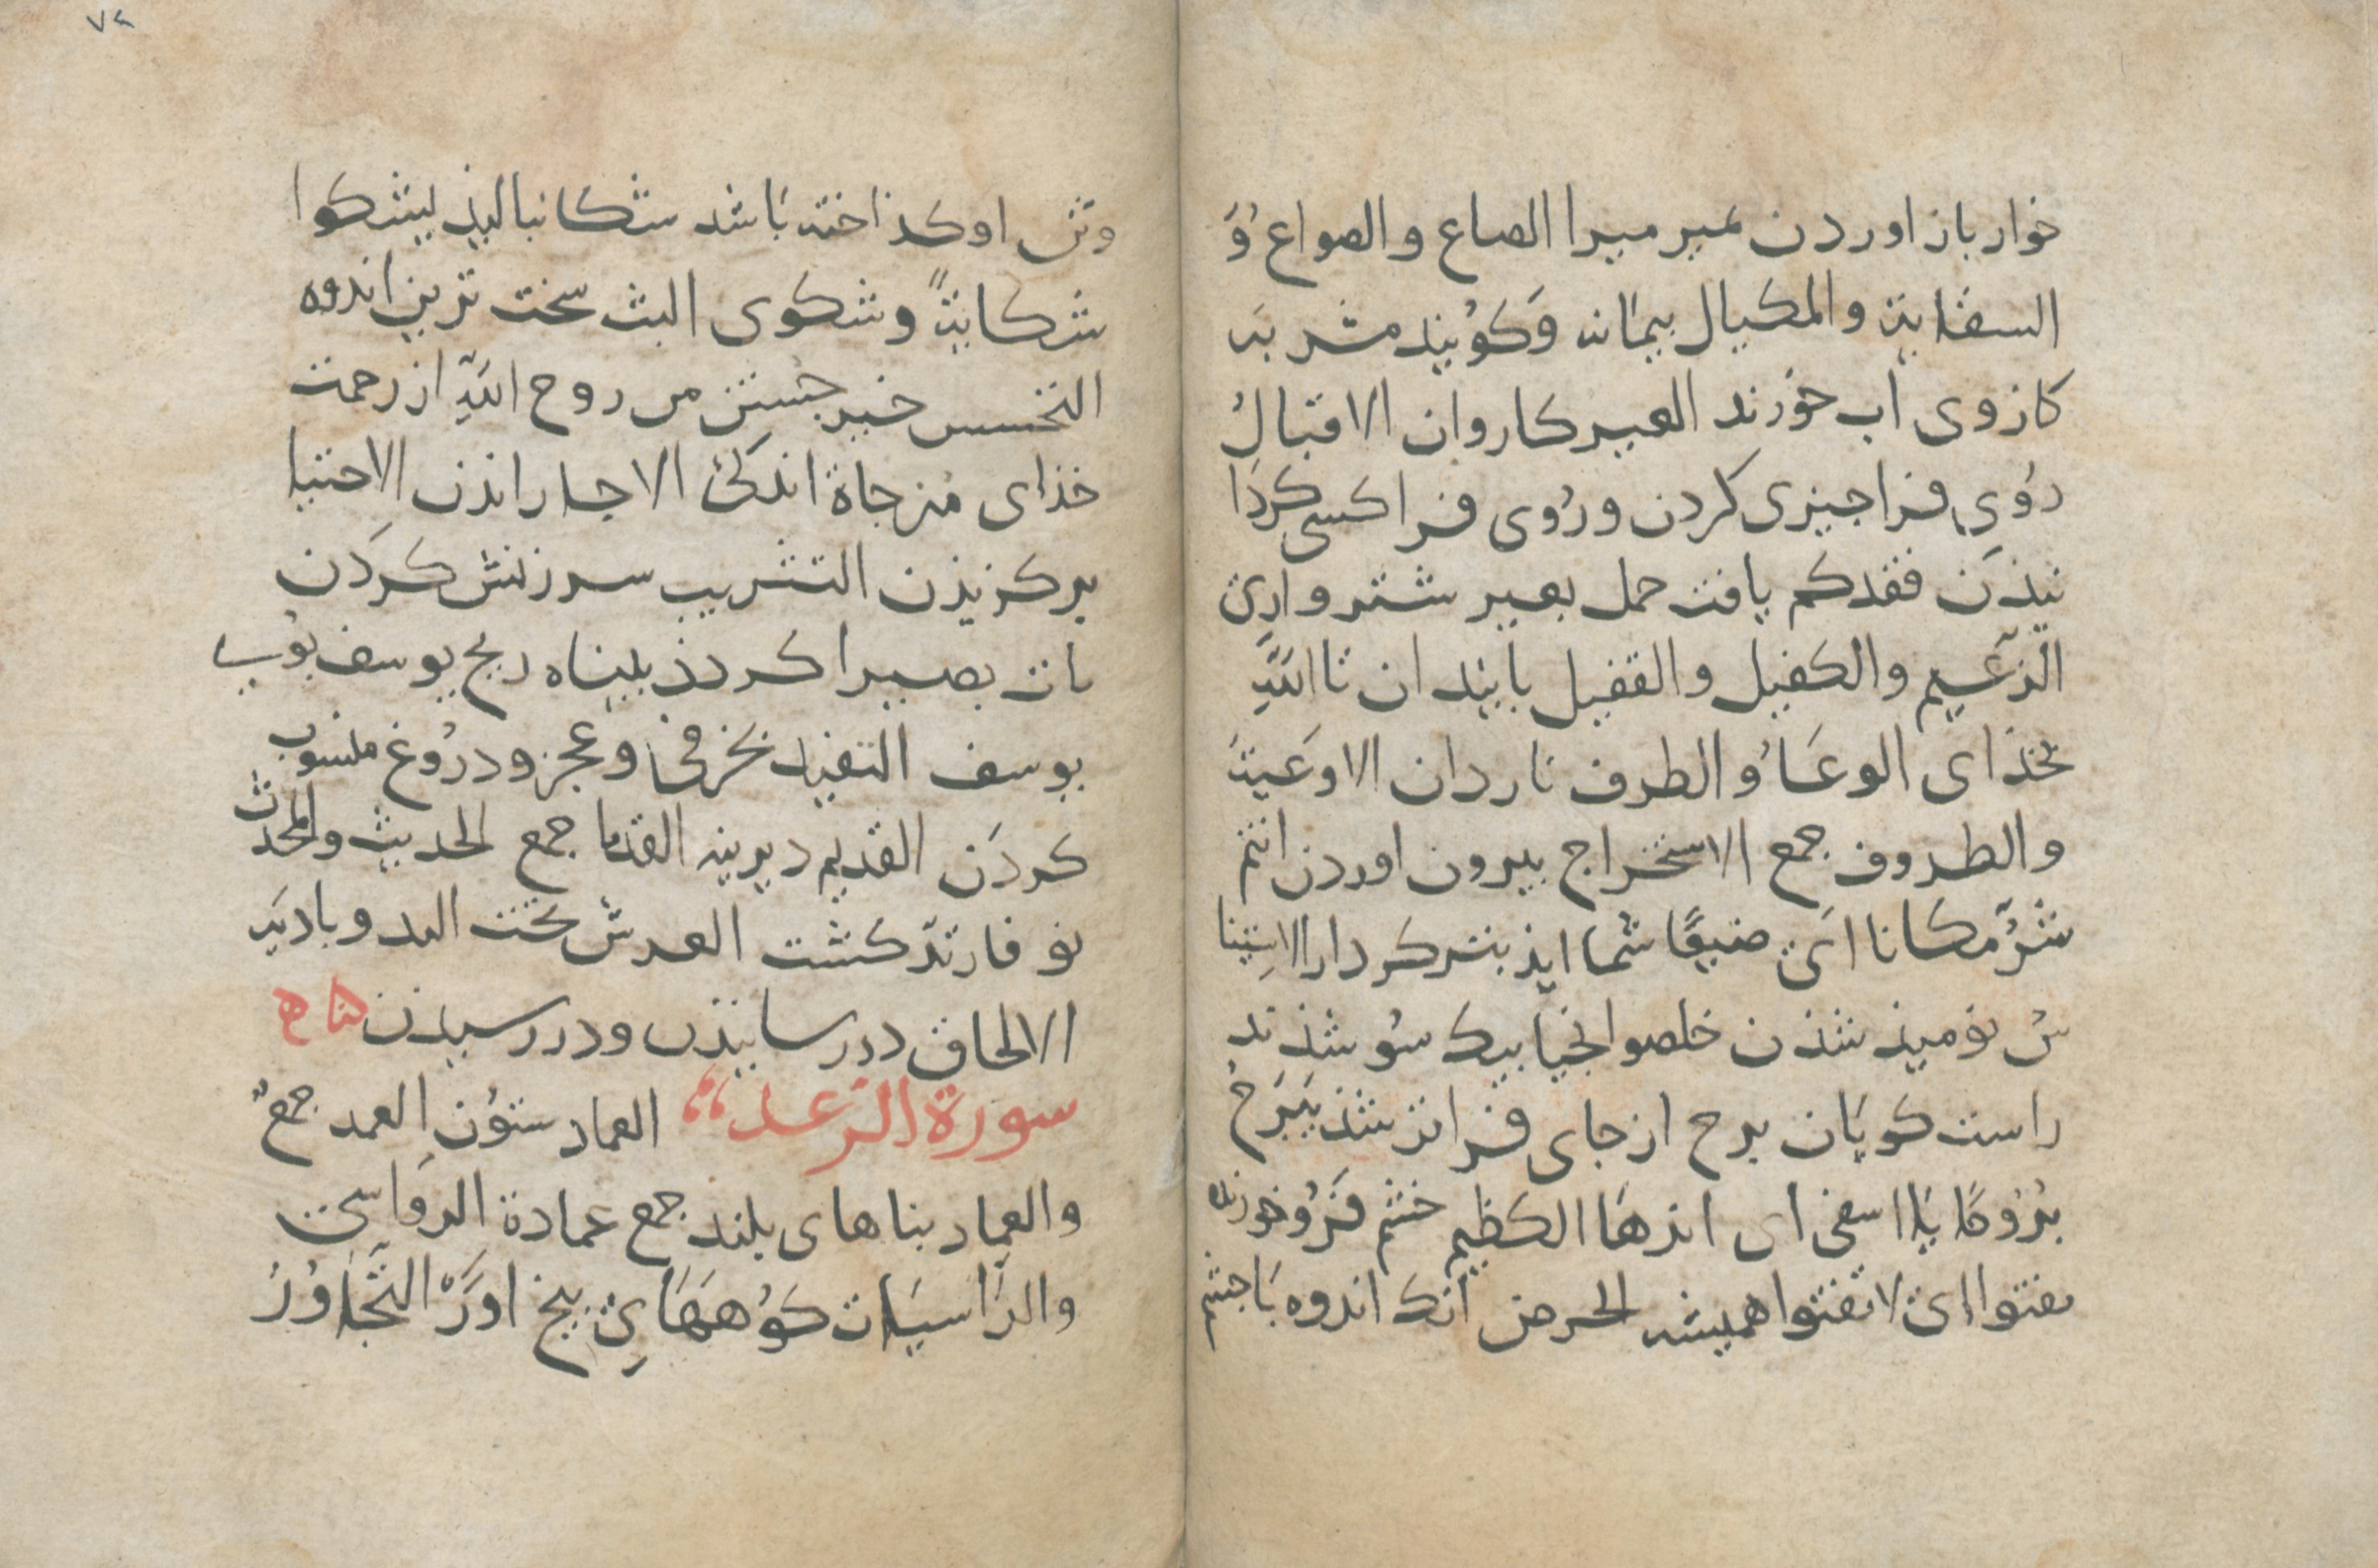 خوار باز اوردن نمیر میرا الصاع و الصواع وَ
السقایة والمکیال بیمانه وَکوُیند مشربَه
کازوی اب خوَرند العیر کاروان الاقبالُ
رُوی فرا جیزی کردن و رُوی فرا کسی کردَا
نیذَن فقدکم یافت حمل بعیر شتر وارِیْ
الزّعیم والکفیل والقفیل بایندان تاالله
بخذای الوعَاُ والطرف ناردان الاوَعیَة
والطروف جمع الاستخراج بیرون اوردن انتم
شرٌّ مکانا ایْ صنیعًا شما ایذ بتر کردار الاستِیئا
سُ نومیذ شذن خلصوا نجیا بیک سُو شذند
راست کویَان برح از جای فراتر شذ یَبَرَحُ
بُرُوحًا یَا اسفی ای اندهَا الکظیم خشم فرُو خورنده
تفتوا ایْ لا تفتوا همیشه الحرض انک اندوه بَا جشم
۷۴
وتن او کذاخته بَاشد شکا نبالیذ یشکوا
شکایةً و شکوی البث سخت ترین اندوه
التحسس خبر جستن من روح الله از رحمت
خذای مُزجاة اندکیْ الاجا راندن الاجتبا
برکزیذن التثریب سرزنش کرَدن
یات بصیرا کردذ بیناه ریح یوسف بوُیِ
یوسف التفنید بخرفی وعجز و درُوغ منسوب
کردَن القدیم دیرینه القدما جمع الحدیث والمحدث
نو فارتدّ کشت العرش تخت البدو بادیَه
الالحاق در رسانیذن و در رسیدن هاه
سورة الرّعد العماد ستوُن العمد جمعٌ
والعِماد بناهای بلند جمع عمادة الروَاسِی
والرّاسیَات کوُههَایِ بیخ اورَْ التّجَاوُرُ